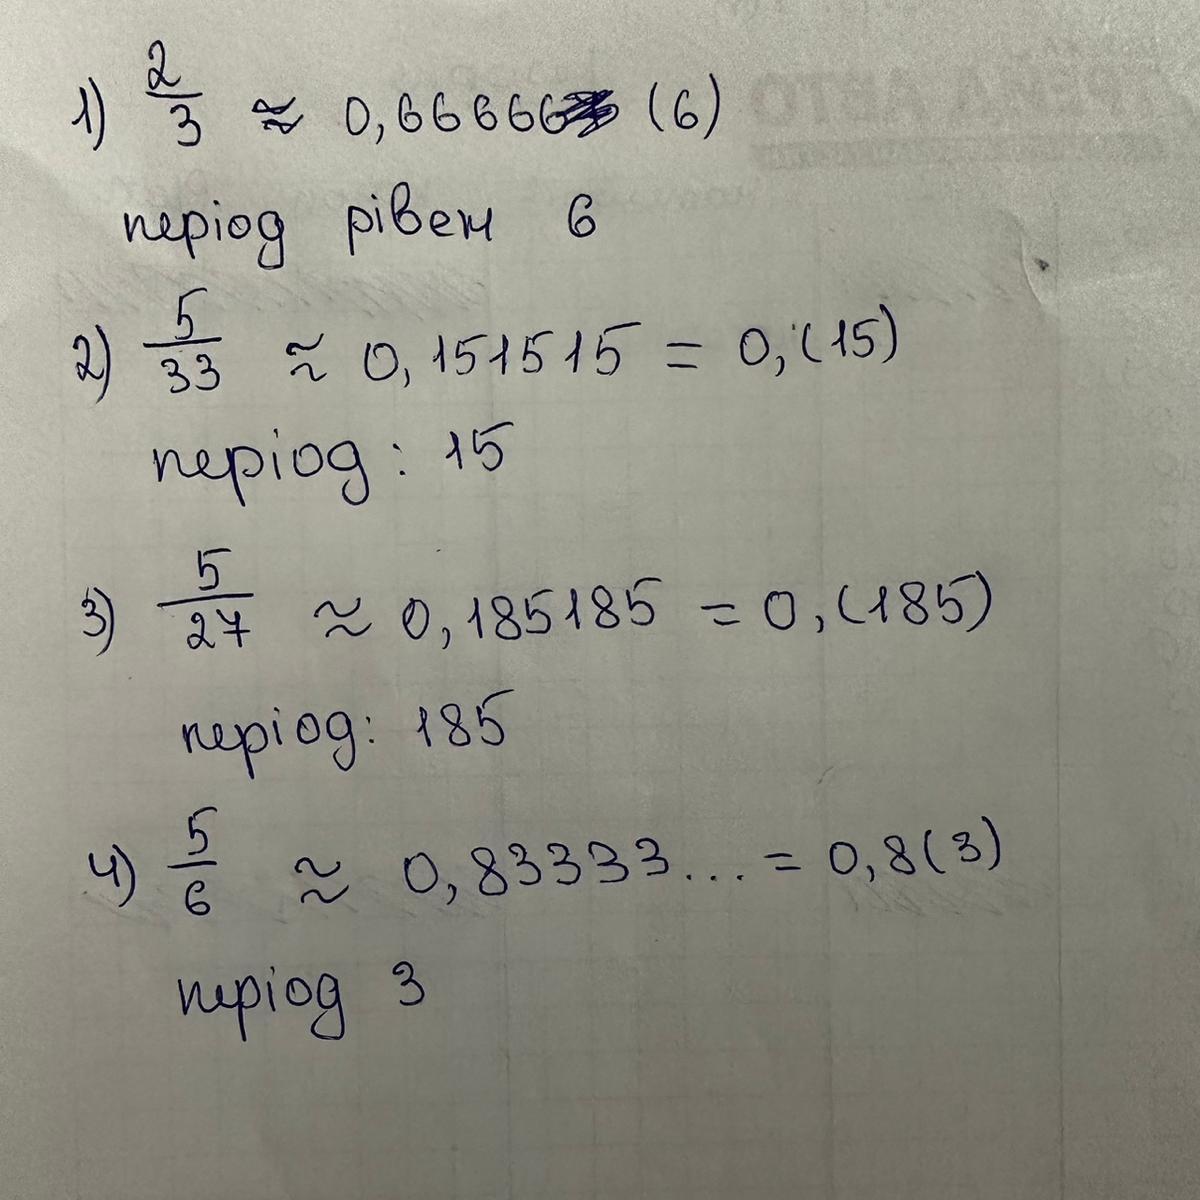 1) 2/3 ≈ 0,66666 (6)
період рівен 6
2) 5/33 ≈ 0,151515 = 0,(15)
період: 15
3) 5/27 ≈ 0,185185 = 0,(185)
період: 185
4) 5/6 ≈ 0,83333... = 0,8(3)
період 3